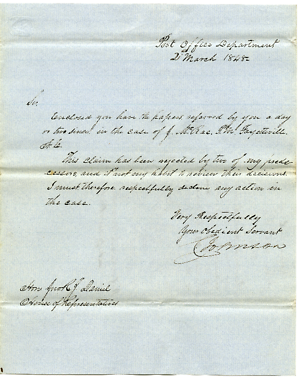 Post Office Department
2 March 1848
Sir
Enclosed you have the papers referred by you a day
or two since in the case of J. McRae, P.M. Fayetteville
N.C.
This claim has been rejected by two of my prede-
cessors, and it not my habit to review their decisions,
I must therefore respectfully decline any action in
the case.
Very Respectfully
Your Obedient Servant
C Johnson
Hon J. R. J. Daniel
House of Representatives